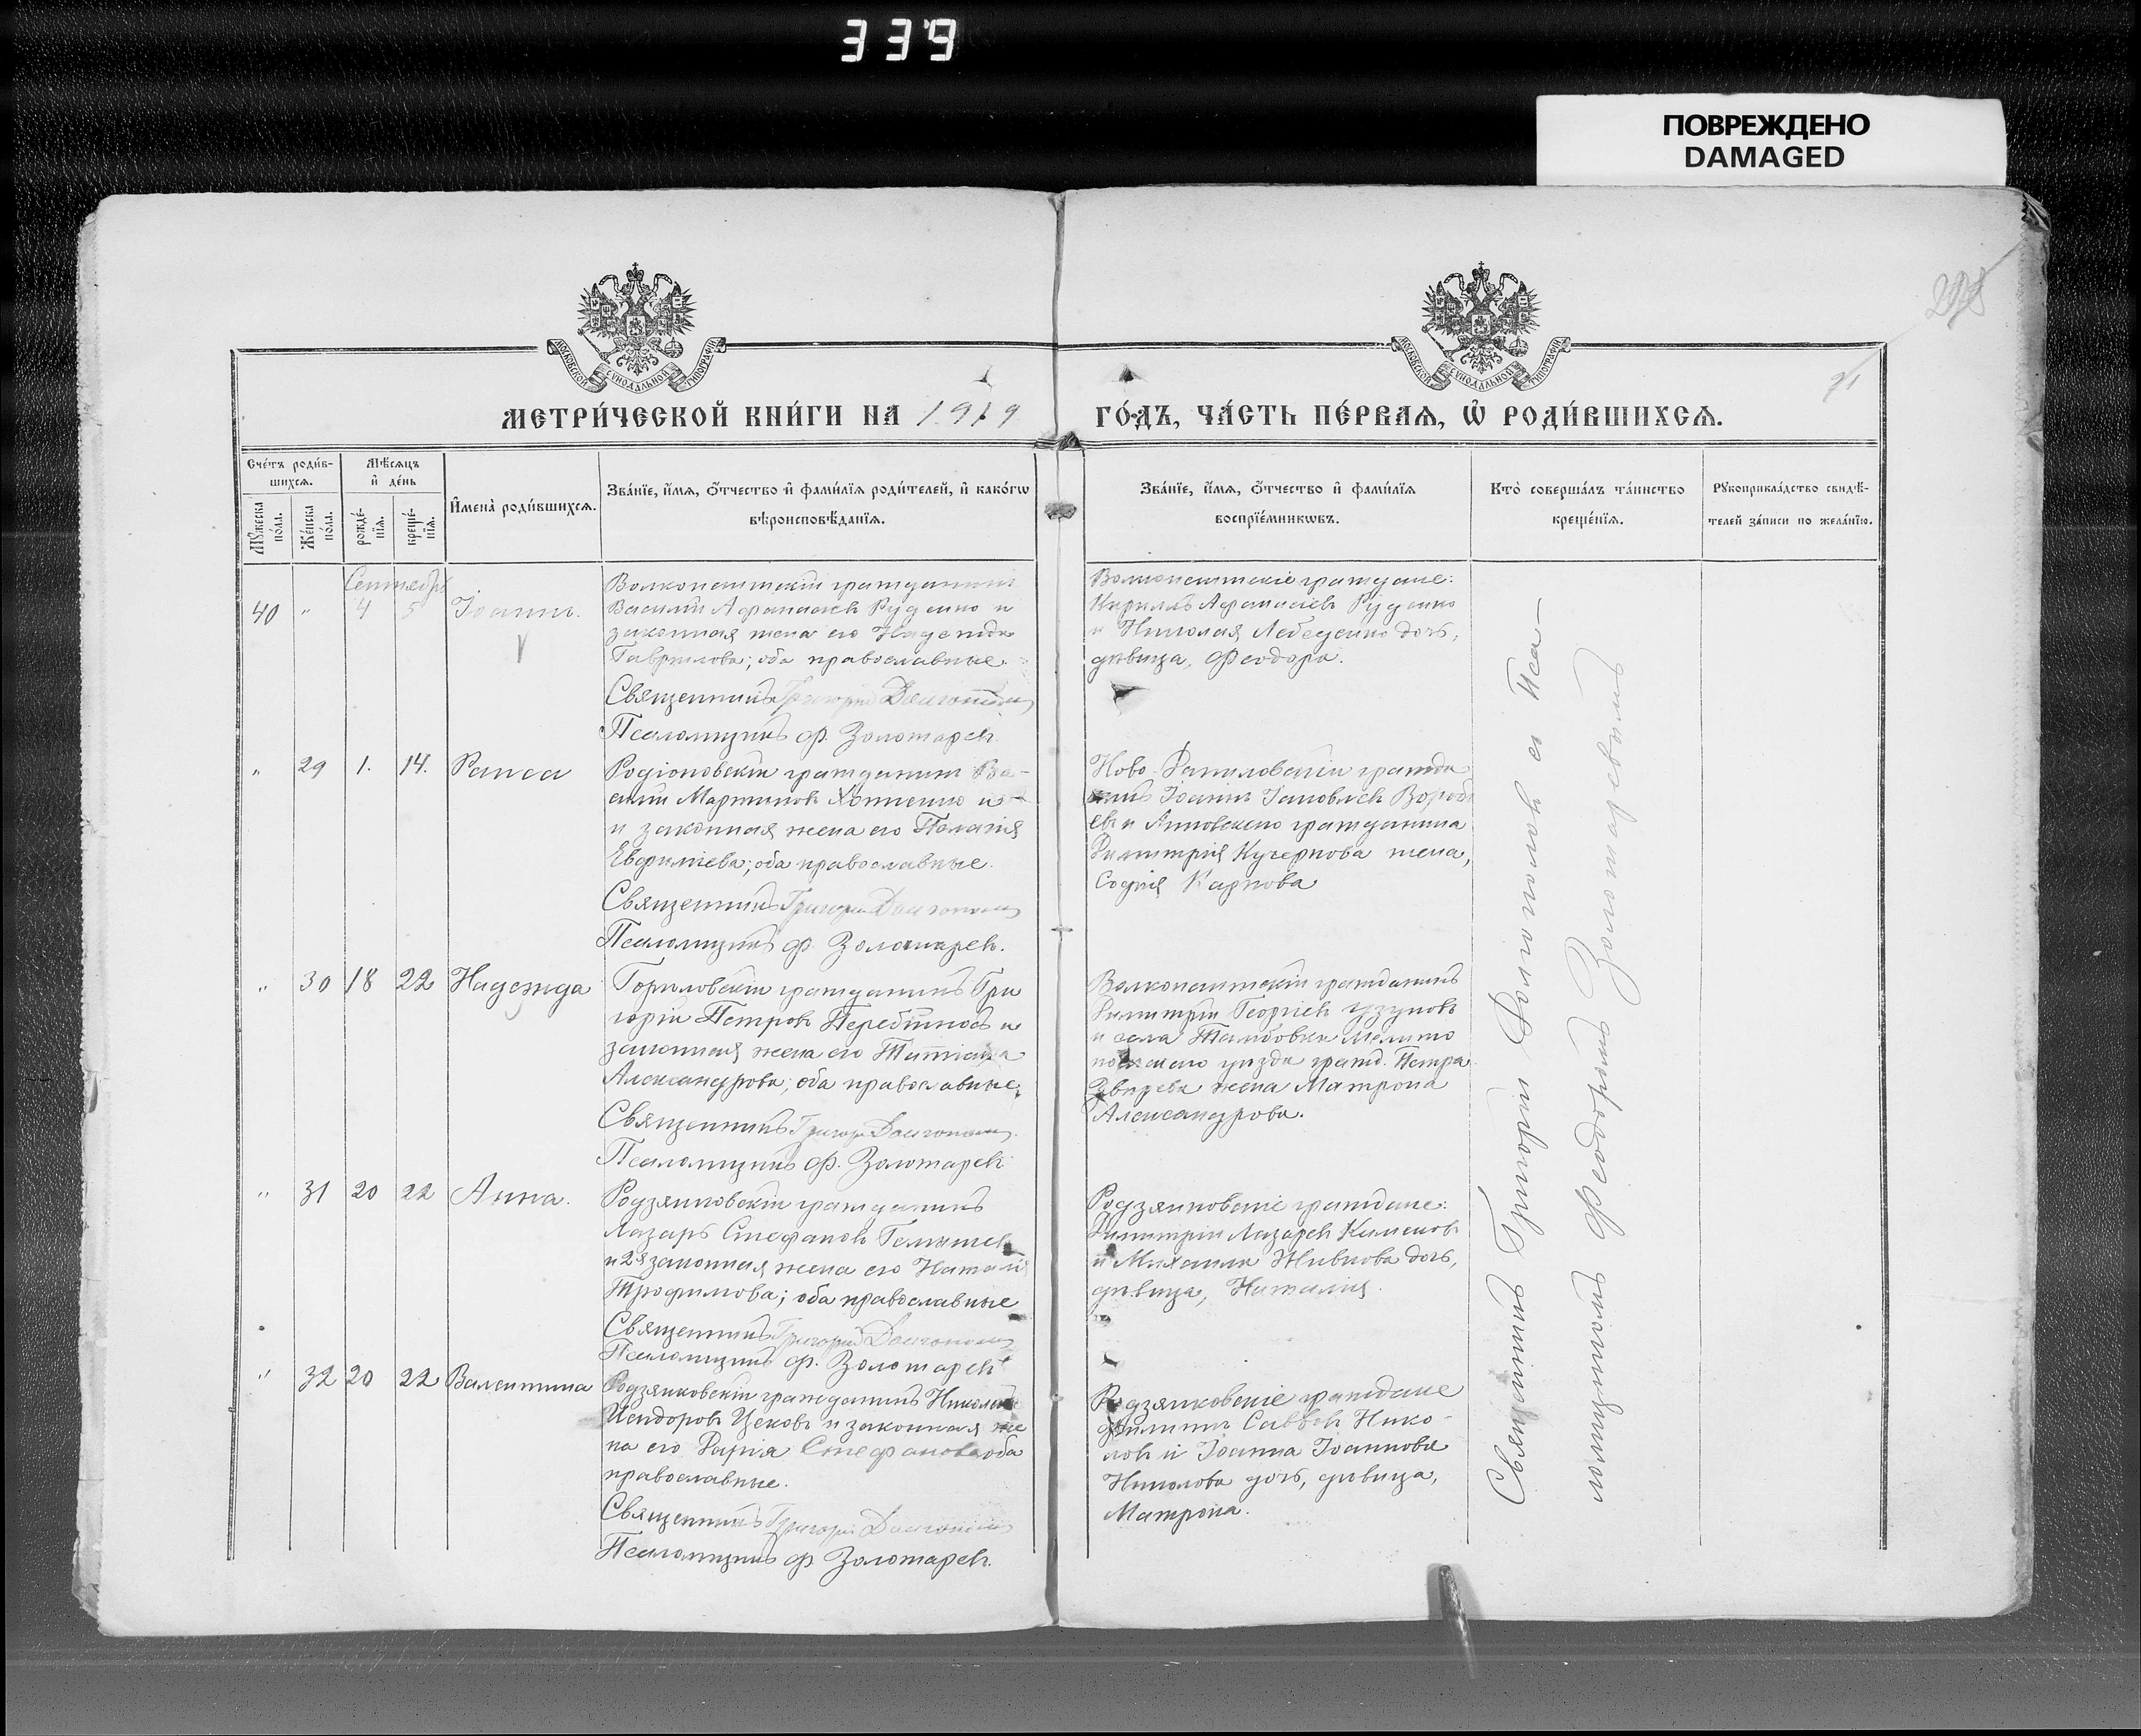 339
ПОВРЕЖДЕНО
DAMAGED
МОСКОВСКОЙ СѴНОДАЛЬНОЙ ТИПОГРАФІИ
МОСКОВСКОЙ СѴНОДАЛЬНОЙ ТИПОГРАФІИ
21
МЕТРИ́ЧЕСКОЙ КНИ́ГИ НА 1919 ГО́ДЪ, ЧА́СТЬ ПЕ́РВАѦ, Ѡ҆ РОДИ́ВШИХСѦ.
Сче́тъ роди́в-
шихсѧ.
Мꙋ́жеска по́ла.
Же́нска по́ла.
Мѣ́сѧцъ
и҆ де́нь
рожде́-
нїѧ.
креще́-
нїѧ.
И҆мена̀ роди́вшихсѧ.
Зва́нїе, и҆́мѧ, ѻ҆́тчество и҆ фами́лїѧ роди́телей, и҆ како́гѡ
вѣроисповѣ́данїѧ.
Зва́нїе, и҆́мѧ, ѻ҆́тчество и҆ фами́лїѧ
воспрїе́мникѡвъ.
Кто̀ соверша́лъ та́инство
креще́нїѧ.
Рꙋкоприкла́дство свидѣ́-
телей за́писи по жела́нїю.
Сентябрь
40 " 4 5 Іоаннъ.
Волконештскій гражданинъ
Василій Афанасіевъ Руденко и
законная жена его Надежда
Гаврилова; оба православные.
Священникъ Григорій Долгополовъ
Псаломщикъ Ф. Золотаревъ.
Волконештскіе граждане:
Кириллъ Афанасіевъ Руденко
и Николая Лебеденко дочь,
дѣвица, Феодора.
" 29 1. 14. Раиса
Родіоновскій гражданинъ Ва-
силій Мартиновъ и
и законная жена его Пелагія
Евфиміева; оба православные.
Священникъ Григорій Долгополовъ
Псаломщикъ Ф. Золотаревъ.
Ново-Даниловскій гражда
нинъ Іоаннъ Іаковлевъ Вороб
евъ и Анновскаго гражданина
Димитрія Кучернова жена,
Софія Карпова
" 30 18 22 Надежда
Гориловскій гражданинъ Гри
горій Петровъ и
законная жена его Татіана
Александрова; оба православные.
Священникъ Григорій Долгополовъ
Псаломщикъ Ф. Золотаревъ
Волконештскій гражданинъ
Димитрій Георгіевъ Узуновъ
и села Тамбовки Мелито
польскаго уѣзда гражд. Петра
жена Матрона
Александрова.
" 31 20 22 Анна.
Родзянковскій гражданинъ
Лазарь Стефановъ
и 2я законная жена его Наталія
Трофимова; оба православные
Священникъ Григорій Долгополовъ
Псаломщикъ Ф. Золотаревъ
Родзянковскіе граждане:
Димитрій Лазаревъ
и Михаила Живкова дочь,
дѣвица, Наталія.
" 32 20 22 Валентина
Родзянковскій гражданинъ Николай
Исидоровъ Цековъ и законная же
на его Дарія Стефанова оба
православные.
Священникъ Григорій Долгополовъ
Псаломщикъ Ф. Золотаревъ.
Родзянковскіе граждане
Филиппъ Саввовъ Нико-
ловъ и Іоанна Іоаннова
Николова дочь, дѣвица,
Матрона.
Священникъ Григорій Долгополовъ съ Пса-
ломщикомъ Феодоромъ Золотаревымъ